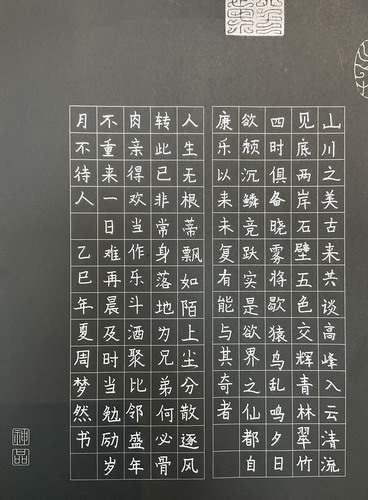 山川之美古来共谈高峰入云清流
见底两岸石壁五色交辉青林翠竹
四时俱备晓雾将歇猿鸟乱鸣夕日
欲颓沉鳞竞跃实是欲界之仙都自
康乐以来未复有能与其奇者
人生无根蒂飘如陌上尘分散逐风
转此已非常身落地为兄弟何必骨
肉亲得欢当作乐斗酒聚比邻盛年
不重来一日难再晨及时当勉励岁
月不待人 乙巳年夏周梦然书
神品